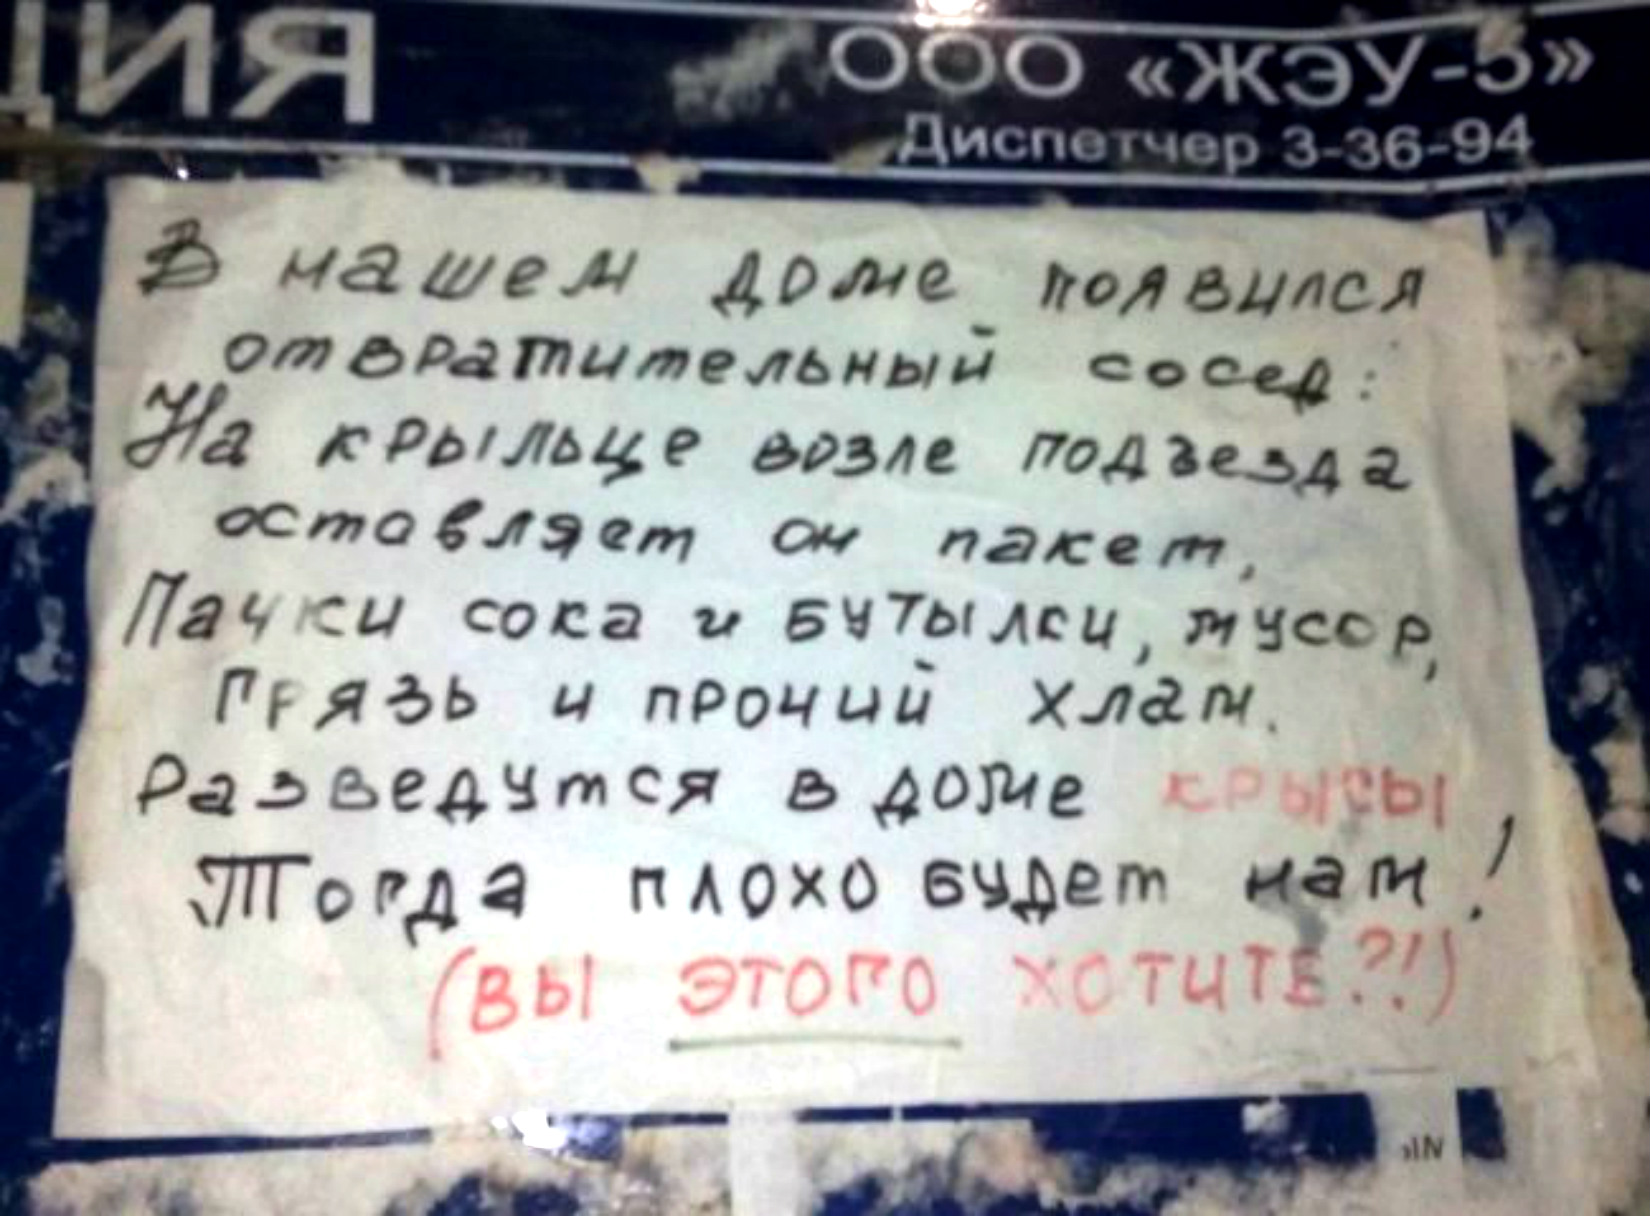 ЦИЯ
ООО «ЖЭУ-5»
Диспетчер 3-36-94
В нашем доме появился
отвратительный сосед:
На крыльце возле подъезда
оставляет он пакет,
Пачки сока и бутылки, мусор,
грязь и прочий хлам.
Разведутся в доме крысы
Тогда плохо будет нам!
(ВЫ ЭТОГО ХОТИТЕ?!)